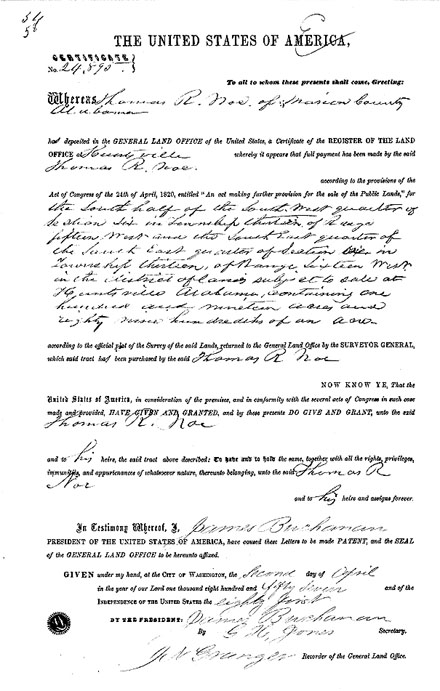 THE UNITED STATES OF AMERICA,
CERTIFICATE
No. 24,890
To all to whom these presents shall come, Greeting:
Whereas Thomas R. Noe, of Marion County
Alabama
had deposited in the GENERAL LAND OFFICE of the United States, a Certificate of the REGISTER OF THE LAND
OFFICE at Huntsville whereby it appears that full payment has been made by the said
Thomas R. Noe.
according to the provisions of the
Act of Congress of the 24th of April, 1820, entitled "An act making further provision for the sale of the Public Lands," for
the South half of the South West quarter of
Section Six in Township thirteen of Range
fifteen West and the South East quarter of
the South East quarter of Section in
Township thirteen, of Range Sixteen West
in the District of Lands subject to sale at
Huntsville Alabama, containing one
hundred and nineteen acres and
eighty hundredths of an acre
according to the official plat of the Survey of the said Lands, returned to the General Land Office by the SURVEYOR GENERAL,
which said tract had been purchased by the said Thomas R Noe
NOW KNOW YE, That the
United States of America, in consideration of the premises, and in conformity with the several acts of Congress in such case
made and provided, HAVE GIVEN AND GRANTED, and by these presents DO GIVE AND GRANT, unto the said
Thomas R. Noe
and to his heirs, the said tract above described: To have and to hold the same, together with all the rights, privileges,
immunities, and appurtenances of whatsoever nature, thereunto belonging, unto the said Thomas R
Noe
and to his heirs and assigns forever.
In Testimony Whereof, I, James Buchanan
PRESIDENT OF THE UNITED STATES OF AMERICA, have caused these Letters to be made PATENT, and the SEAL
of the GENERAL LAND OFFICE to be hereunto affixed.
GIVEN under my hand, at the CITY OF WASHINGTON, the Second day of April
in the year of our Lord one thousand eight hundred and fifty seven and of the
INDEPENDENCE OF THE UNITED STATES the eighty first
BY THE PRESIDENT: James Buchanan
By Jones Secretary.
J N Granger Recorder of the General Land Office.